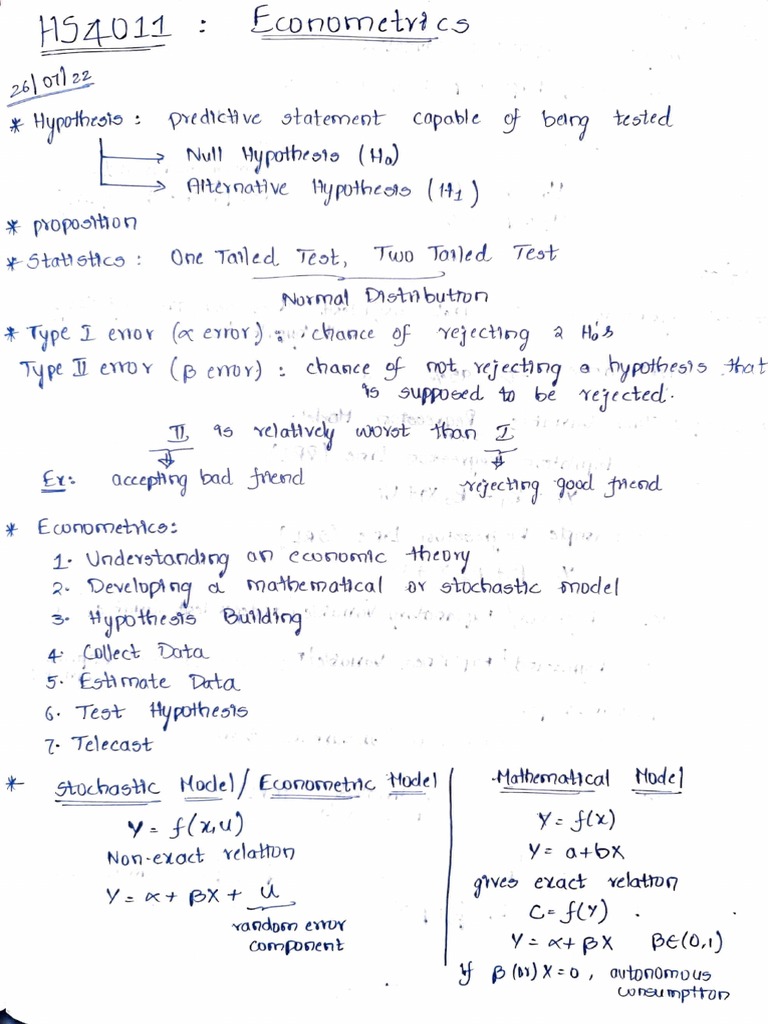 HS4011 : Econometrics
26/07/22
* Hypothesis : predictive statement capable of being tested
→ Null Hypothesis (H₀)
→ Alternative Hypothesis (H₁)
* proposition
* Statistics : One Tailed Test, Two Tailed Test
Normal Distribution
* Type I error (α error) : chance of rejecting a H₀'s
Type II error (β error) : chance of not rejecting a hypothesis that
is supposed to be rejected.
II is relatively worst than I
Ex: accepting bad friend rejecting good friend
* Econometrics:
1. Understanding an economic theory
2. Developing a mathematical or stochastic model
3. Hypothesis Building
4. Collect Data
5. Estimate Data
6. Test Hypothesis
7. Telecast
* Stochastic Model / Econometric Model
Y = f(x,u)
Non-exact relation
Y = α + βX + u
random error
component
Mathematical Model
Y = f(x)
Y = a+bx
gives exact relation
C = f(Y)
Y = α + βX β∈(0,1)
If β (or) X = 0, autonomous
consumption